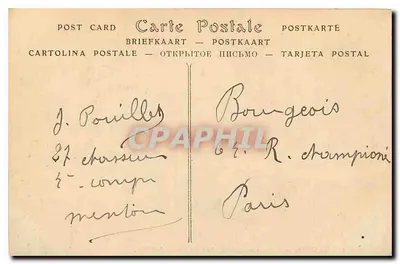 POST CARD Carte Postale POSTKARTE
BRIEFKAART — POSTKAART
CARTOLINA POSTALE — ОТКРЫТОЕ ПИСЬМО — TARJETA POSTAL
J. Pouilles
27 chasseur
5e comp
menton
Bourgeois
64. R. championé
Paris
CPAPHIL